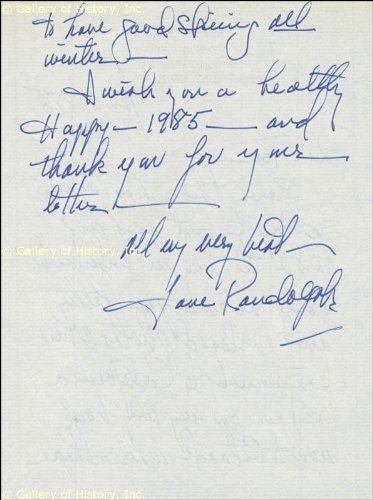 © Gallery of History, Inc.
to have good skiing all
winter —
I wish you a healthy
Happy — 1985 — and
thank you for your
letter —
© Gallery of History, Inc.
all my very best —
Jane Randolph
© Gallery of History, Inc.